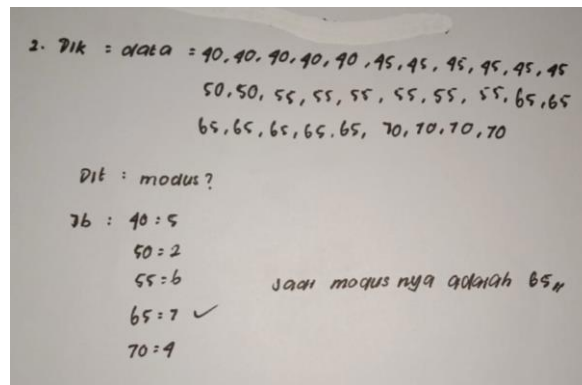 2. Dik : data = 40, 40, 40, 40, 40, 45, 45, 45, 45, 45, 45
50, 50, 55, 55, 55, 55, 55, 55, 65, 65
65, 65, 65, 65, 65, 70, 70, 70, 70
Dit : modus?
Jb : 40 : 5
50 = 2
55 = 6
Jadi modus nya adalah 65,,
65 = 7 ✓
70 = 4